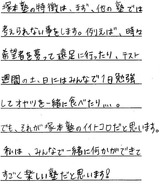 塚本塾の特徴は、まず、他の塾では
考えられない事をします。例えば、時々
希望者を募って遠足に行ったり、テスト
週間の土、日にはみんなで1日勉強
してオヤツを一緒に食べたり...。
でも、それが塚本塾のイイトコロだと思います。
私は、みんなで一緒に何かができて
すごく楽しい塾だと思います!